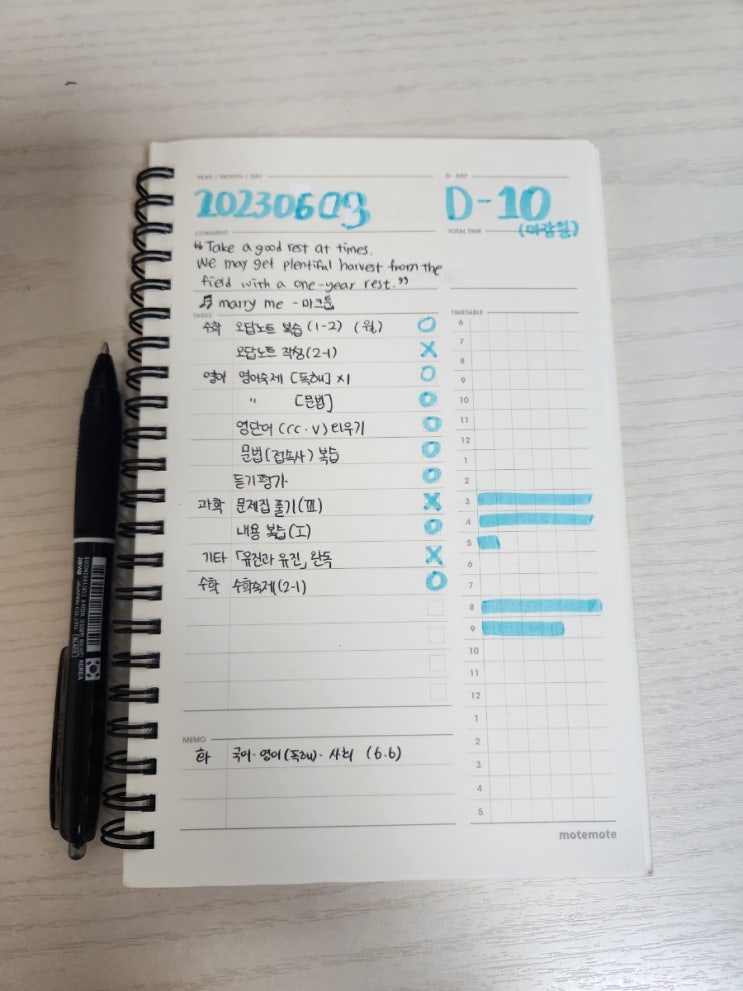 YEAR / MONTH / DAY
D - DAY
20230603
D-10
(마감일)
COMMENT
TOTAL TIME
"Take a good rest at times.
We may get plentiful harvest from the
field with a one-year rest."
♬ marry me - 마크툽
TASKS
TIMETABLE
수학 오답노트 복습 (1-2) (월) O
오답노트 작성(2-1) X
영어 영어숙제 [독해] x1 O
" [문법] O
영단어 (CC·V) 외우기 O
문법(접속사) 복습 O
듣기평가 O
과학 문제집 풀기(Ⅲ) X
내용 복습(Ⅰ) O
기타 「유진과 유진」 완독 X
수학 수학숙제(2-1) O
6
7
8
9
10
11
12
1
2
3
4
5
6
7
8
9
10
11
12
1
2
3
4
5
MEMO
화 국어·영어(독해)·사회 (6.6)
motemote
KOREA